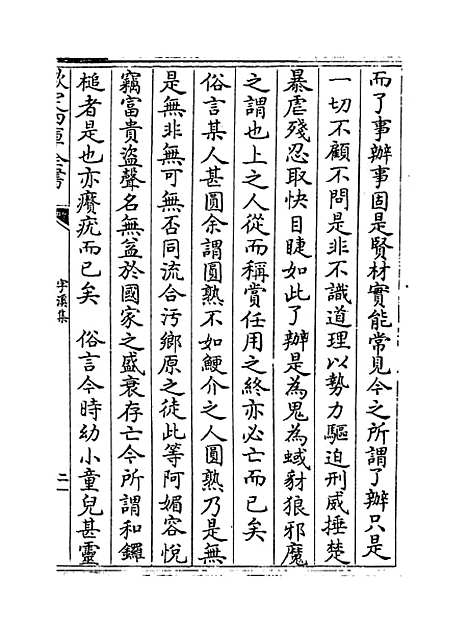 而了事辦事固是賢材實能常見今之所謂了辦只是
一切不顧不問是非不識道理以勢力驅迫刑威捶楚
暴虐殘忍取快目睫如此了辦是為鬼為蜮豺狼邪魔
之謂也上之人從而稱賞任用之終亦必亡而已矣
俗言某人甚圓余謂圓熟不如鯁介之人圓熟乃是無
是無非無可無否同流合汚鄉原之徒此等阿媚容悅
竊富貴盜聲名無益於國家之盛衰存亡今所謂和鑼
槌者是也亦癢疣而已矣　俗言今時幼小童兒甚靈
欽定四庫全書
字溪集
二